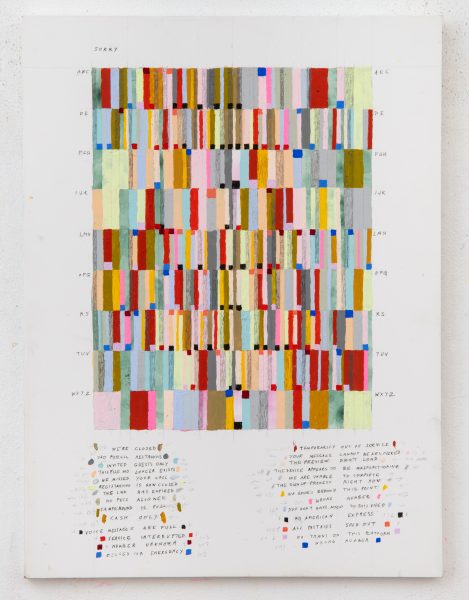 SORRY
ABC
ABC
DE
DE
FGH
FGH
IJK
IJK
LMN
LMN
OPQ
OPQ
RS
RS
TUV
TUV
WXYZ
WXYZ
WE'RE CLOSED
NO PUBLIC RESTROOMS
INVITED GUESTS ONLY
THIS FILE NO LONGER EXISTS
WE MISSED YOUR CALL
REGISTRATION IS NOW CLOSED
THE LINK HAS EXPIRED
NO PETS ALLOWED
CAMPGROUND IS FULL
CASH ONLY
VOICE MESSAGES ARE FULL
SERVICE INTERRUPTED
NUMBER UNKNOWN
CLOSED FOR EMERGENCY
TEMPORARILY OUT OF SERVICE
YOUR MESSAGE CANNOT BE DELIVERED
THE PREVIEW DIDN'T LOAD
THE DEVICE APPEARS TO BE MALFUNCTIONING
WE ARE UNABLE TO COMPLETE
THE SIGNUP PROCESS RIGHT NOW
NO DOGS BEYOND THIS POINT
WRONG NUMBER
YOU DON'T HAVE ACCESS TO THIS
NO AMERICAN EXPRESS
ALL PASTRIES SOLD OUT
NO TRAINS ON THIS PLATFORM
WRONG NUMBER